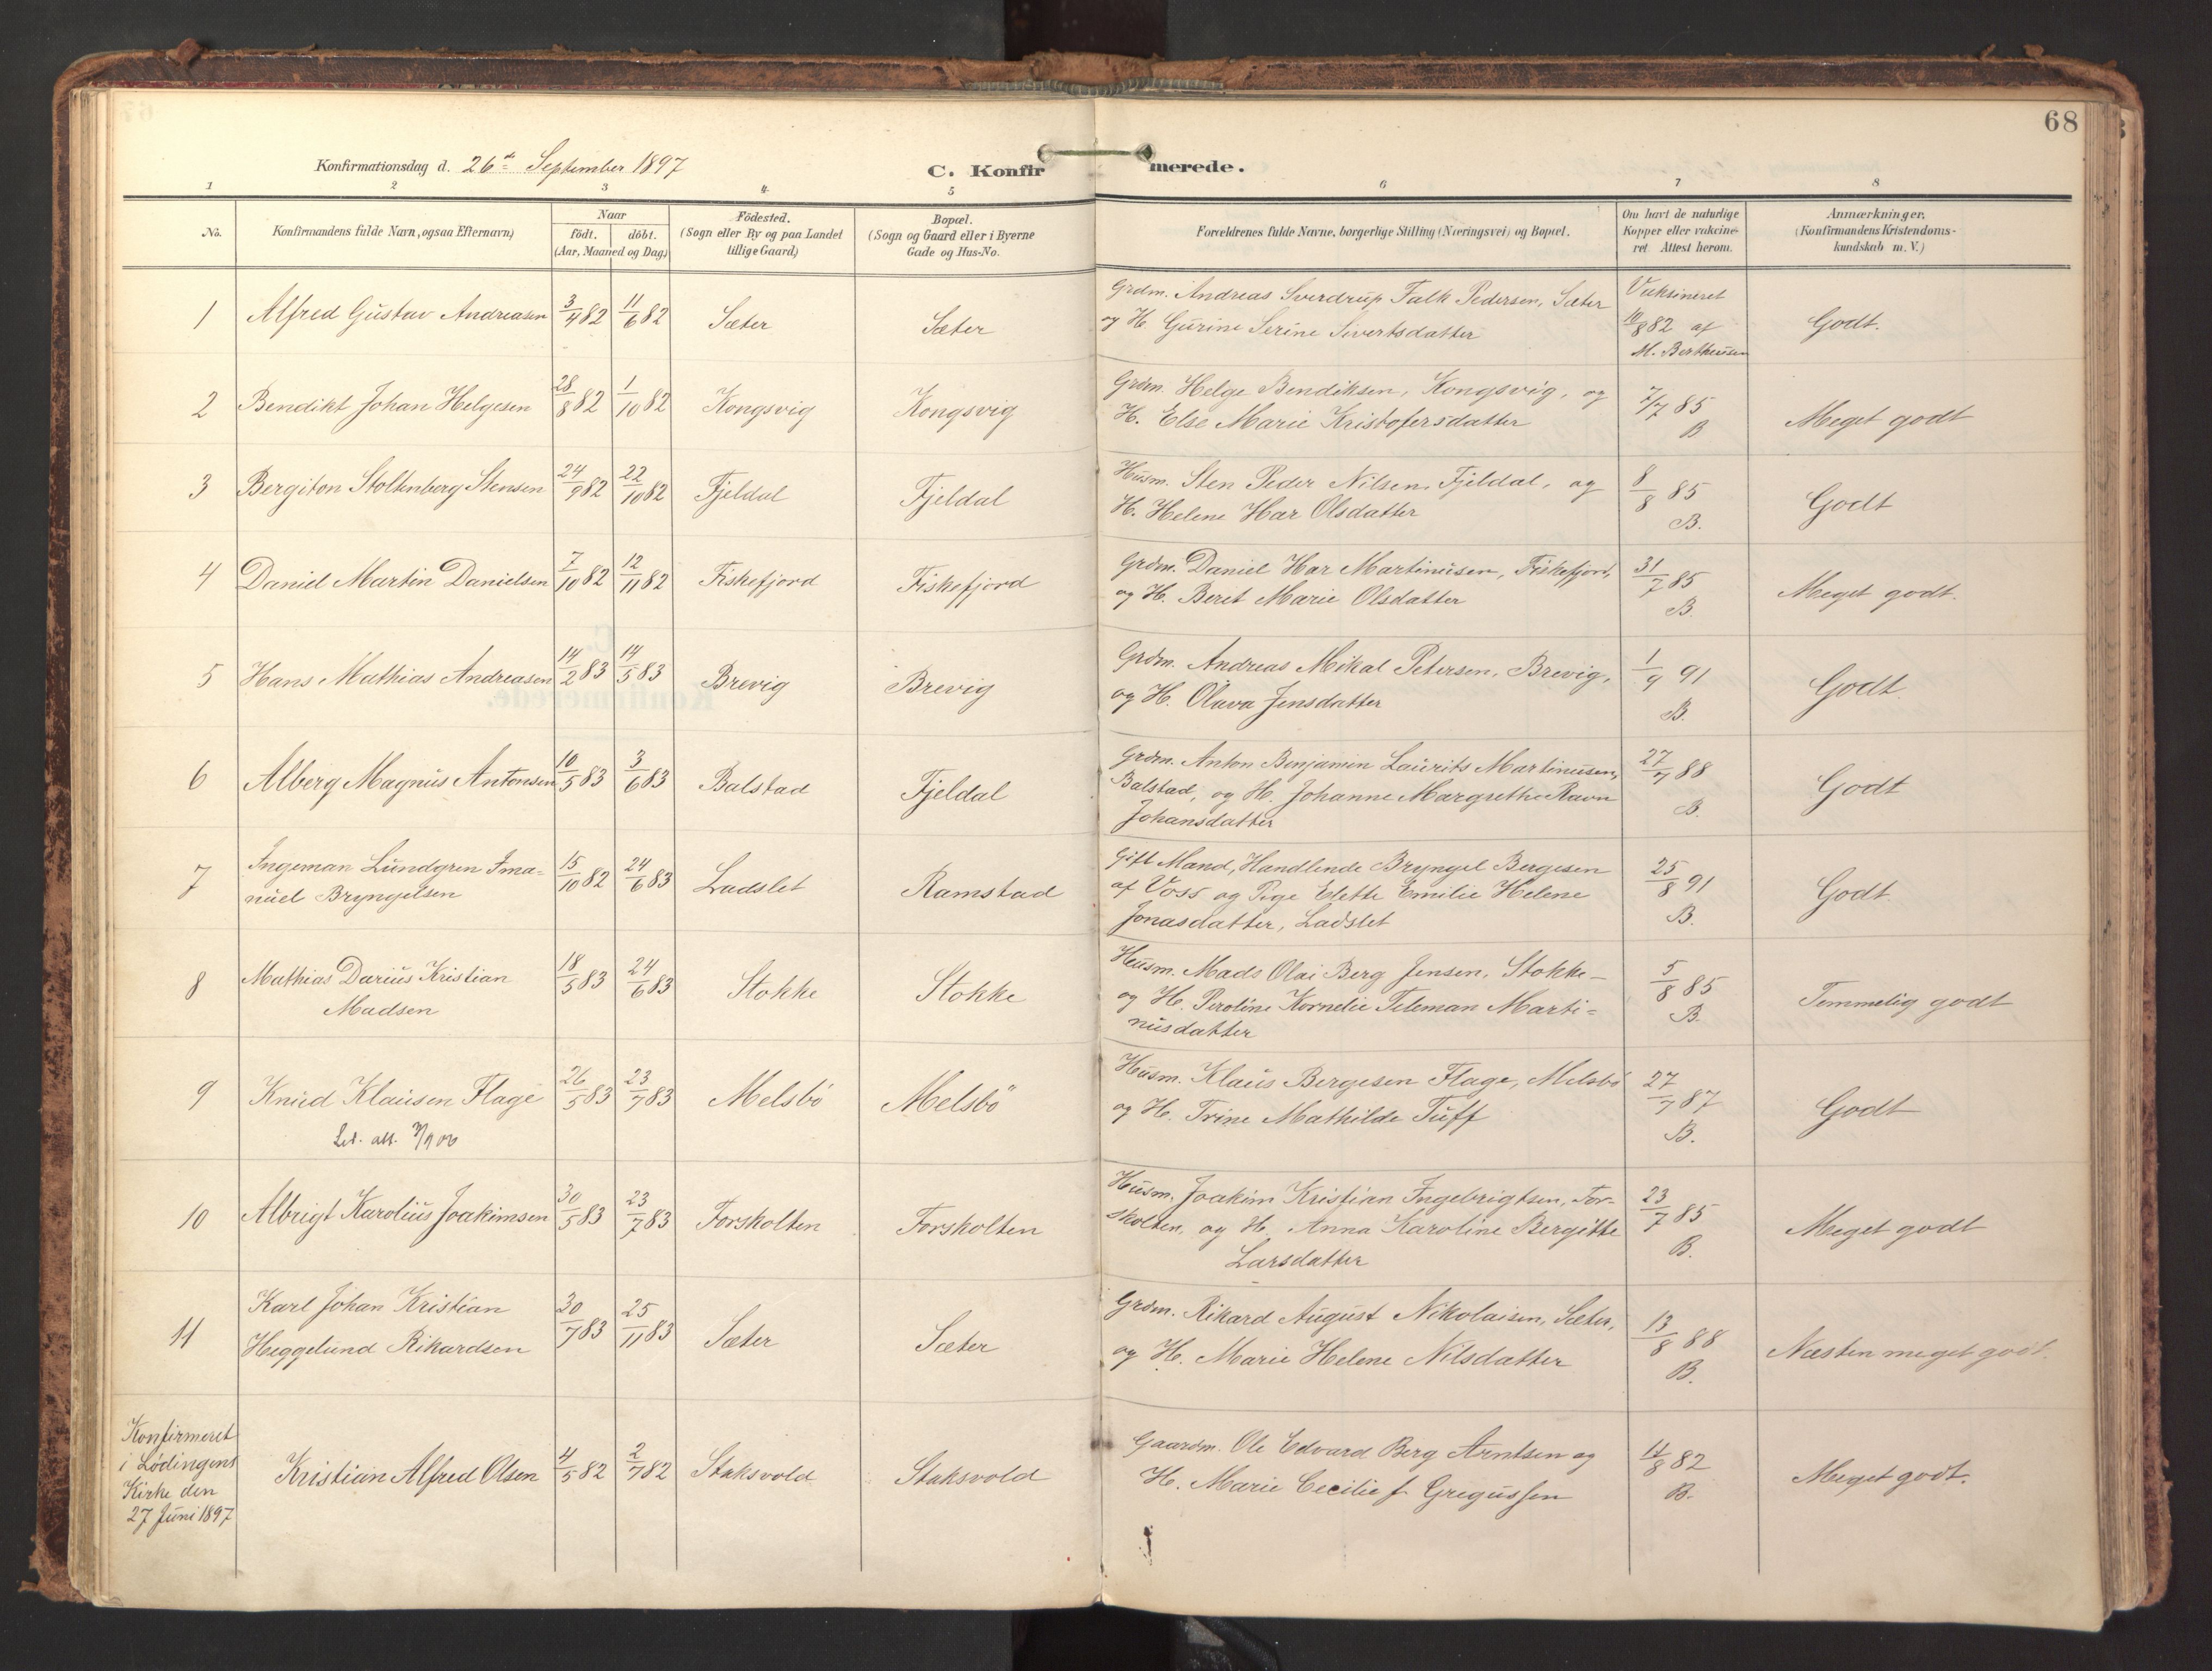 68
Konfirmationsdag d. 26de September 1897
C. Konfirmerede.
1 2 3 4 5 6 7 8
No. Konfirmandens fulde Navn, ogsaa Efternavn) Naar födt. döbt. (Aar, Maaned og Dag) Födested. (Sogn eller By og paa Landet tillige Gaard) Bopæl. (Sogn og Gaard eller i Byerne Gade og Hus-No. Forældrenes fulde Navne, borgerlige Stilling (Næringsvei) og Bopæl. Om havt de naturlige Kopper eller vakcineret. Attest herom. Anmærkninger, (Konfirmandens Kristendomskundskab m. V.)
1 Alfred Gustav Andreasen 3/4 82 11/6 82 Sæter Sæter Grdm. Andreas Sverdrup Falk Pedersen, Sæter
og H. Gurine Serine Sivertsdatter Vaksineret 10/8 82 af M. Bertheussen Godt.
2 Bendikt Johan Helgesen 28/8 82 1/10 82 Kongsvig Kongsvig Grdm. Helge Bendiksen, Kongsvig, og
H. Else Marie Kristofersdatter 7/7 85 B Meget godt
3 Bergiton Stoltenberg Stensen 24/9 82 22/10 82 Fjeldal Fjeldal Husm. Sten Peder Nilsen, Fjeldal, og
H. Helene Har Olsdatter 8/8 85 B. Godt
4 Daniel Martin Danielsen 7/10 82 12/11 82 Fiskefjord Fiskefjord Grdm. Daniel Har Martinusen, Fiskefjord,
og H. Beret Marie Olsdatter 31/7 85 B. Meget godt.
5 Hans Mathias Andreasen 14/2 83 14/5 83 Brevig Brevig Grdm. Andreas Mikal Petersen, Brevig,
og H. Olava Jensdatter 1/9 91 B. Godt.
6 Alberg Magnus Antonsen 10/5 83 3/6 83 Balstad Fjeldal Grdm. Anton Benjamin Laurits Martinusen,
Balstad, og H. Johanne Margrethe Ravn
Johansdatter 27/7 88 B. Godt
7 Ingeman Lundgren Ima-
nuel Bryngelsen 15/10 82 24/6 83 Ladslet Ramstad Gift Mand, Handlende Bryngel Bergesen
af Voss og Pige Elette Emilie Helene
Jonasdatter, Ladslet 25/8 91 B. Godt.
8 Mathias Darius Kristian
Madsen 18/5 83 24/6 83 Stokke Stokke Husm. Mads Olai Berg Jensen, Stokke –
og H. Peroline Kornelie Teleman Marti-
nusdatter 5/8 85 B. Temmelig godt
9 Knud Klausen Flage 26/5 83 23/7 83 Melsbö Melsbö Husm. Klaus Bergesen Flage, Melsbö
og H. Trine Mathilde Tuff 27/7 87 B. Godt
10 Albrigt Karolius Joakimsen 30/5 83 23/7 83 Forskolten Forskolten Husm. Joakim Kristian Ingebrigtsen, For-
skolten, og H. Anna Karoline Bergitte
Larsdatter 23/7 85 B. Meget godt
11 Karl Johan Kristian
Heggelund Rikardsen 30/7 83 25/11 83 Sæter Sæter Grdm. Rikard August Nikolaisen, Sæter,
og H. Marie Helene Nilsdatter 13/8 88 B. Næsten meget godt.
Konfirmeret
i Lödingens
Kirke den
27 Juni 1897
Kristian Alfred Olsen 4/5 82 2/7 82 Staksvold Staksvold Gaardm. Ole Edvard Berg Arntsen og
H. Marie Cecilie f. Gregussen 14/8 82 B. Meget godt.